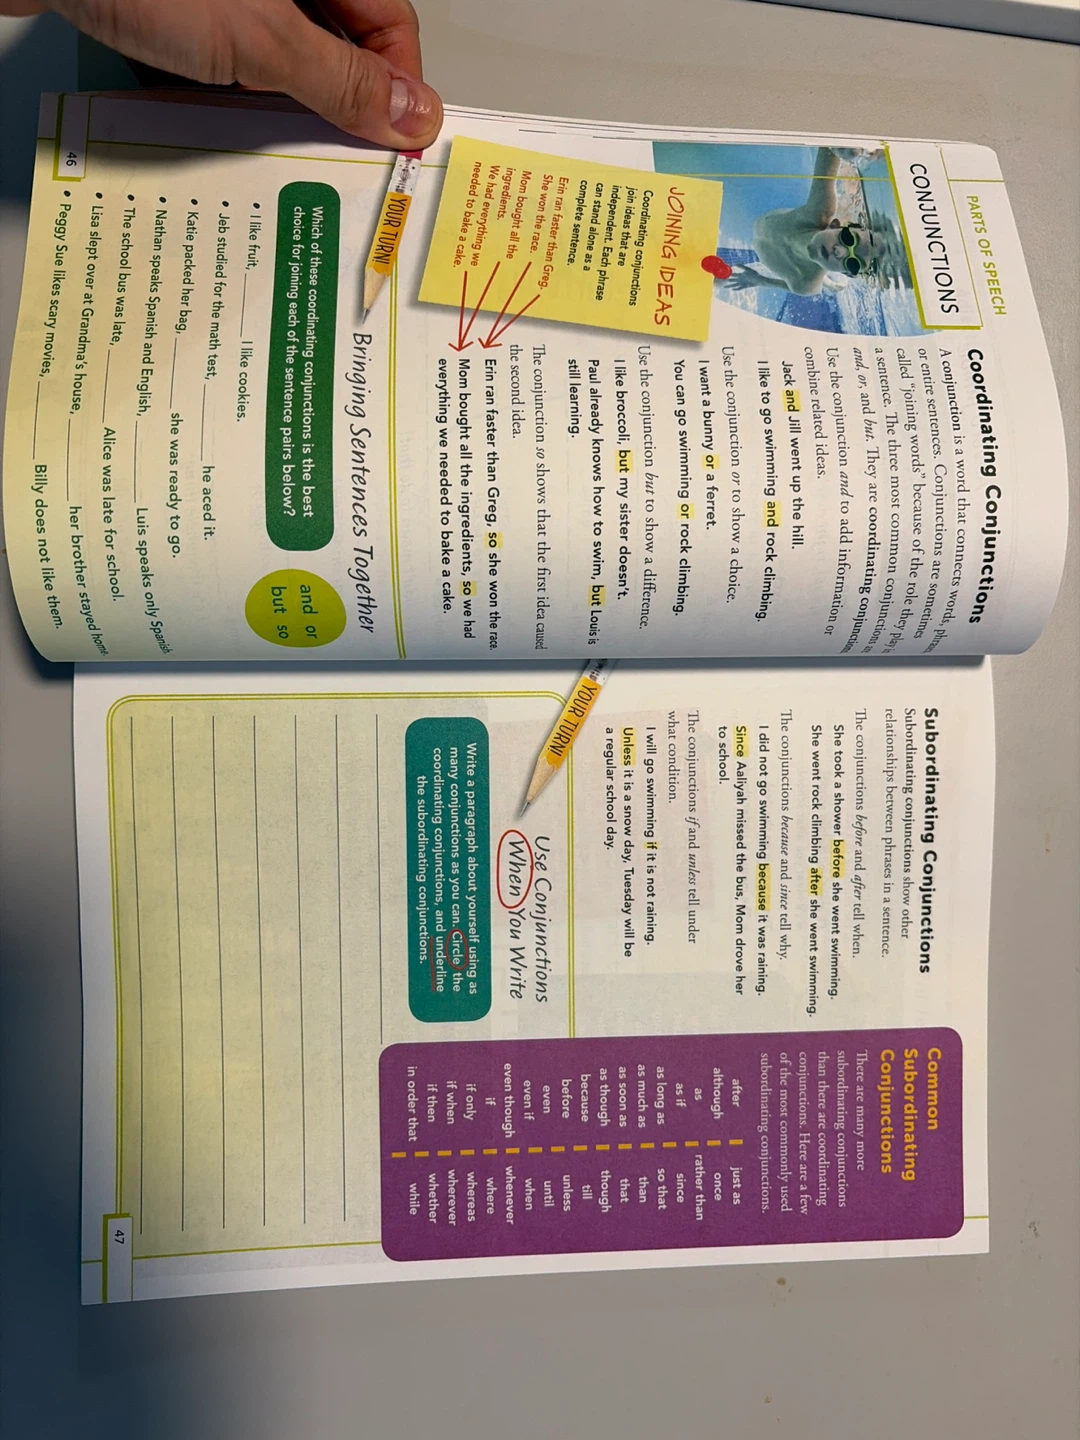 PARTS OF SPEECH
CONJUNCTIONS
Coordinating Conjunctions
A conjunction is a word that connects words, phrases
or entire sentences. Conjunctions are sometimes
called "joining words" because of the role they play in
a sentence. The three most common conjunctions are
and, or, and but. They are coordinating conjunctions
Use the conjunction and to add information or
combine related ideas.
Jack and Jill went up the hill.
I like to go swimming and rock climbing.
Use the conjunction or to show a choice.
I want a bunny or a ferret.
You can go swimming or rock climbing.
Use the conjunction but to show a difference.
I like broccoli, but my sister doesn't.
Paul already knows how to swim, but Louis is
still learning.
The conjunction so shows that the first idea caused
the second idea.
Erin ran faster than Greg, so she won the race.
Mom bought all the ingredients, so we had
everything we needed to bake a cake.
JOINING IDEAS
Coordinating conjunctions
join ideas that are
independent. Each phrase
can stand alone as a
complete sentence.
Erin ran faster than Greg.
She won the race.
Mom bought all the
ingredients.
We had everything we
needed to bake a cake.
YOUR TURN!
Bringing Sentences Together
Which of these coordinating conjunctions is the best
choice for joining each of the sentence pairs below?
and or
but so
• I like fruit, ____ I like cookies.
• Jeb studied for the math test, ____ he aced it.
• Katie packed her bag, ____ she was ready to go.
• Nathan speaks Spanish and English, ____ Luis speaks only Spanish
• The school bus was late, ____ Alice was late for school.
• Lisa slept over at Grandma's house, ____ her brother stayed home.
• Peggy Sue likes scary movies, ____ Billy does not like them.
46
Subordinating Conjunctions
Subordinating conjunctions show other
relationships between phrases in a sentence.
The conjunctions before and after tell when.
She took a shower before she went swimming.
She went rock climbing after she went swimming.
The conjunctions because and since tell why.
I did not go swimming because it was raining.
Since Aaliyah missed the bus, Mom drove her
to school.
The conjunctions if and unless tell under
what condition.
I will go swimming if it is not raining.
Unless it is a snow day, Tuesday will be
a regular school day.
YOUR TURN!
Use Conjunctions
When You Write
Write a paragraph about yourself using as
many conjunctions as you can. Circle the
coordinating conjunctions, and underline
the subordinating conjunctions.
Common
Subordinating
Conjunctions
There are many more
subordinating conjunctions
than there are coordinating
conjunctions. Here are a few
of the most commonly used
subordinating conjunctions.
after just as
although once
as rather than
as if since
as long as so that
as much as than
as soon as that
as though though
because till
before unless
even until
even if when
even though whenever
if where
if only whereas
if when wherever
if then whether
in order that while
47